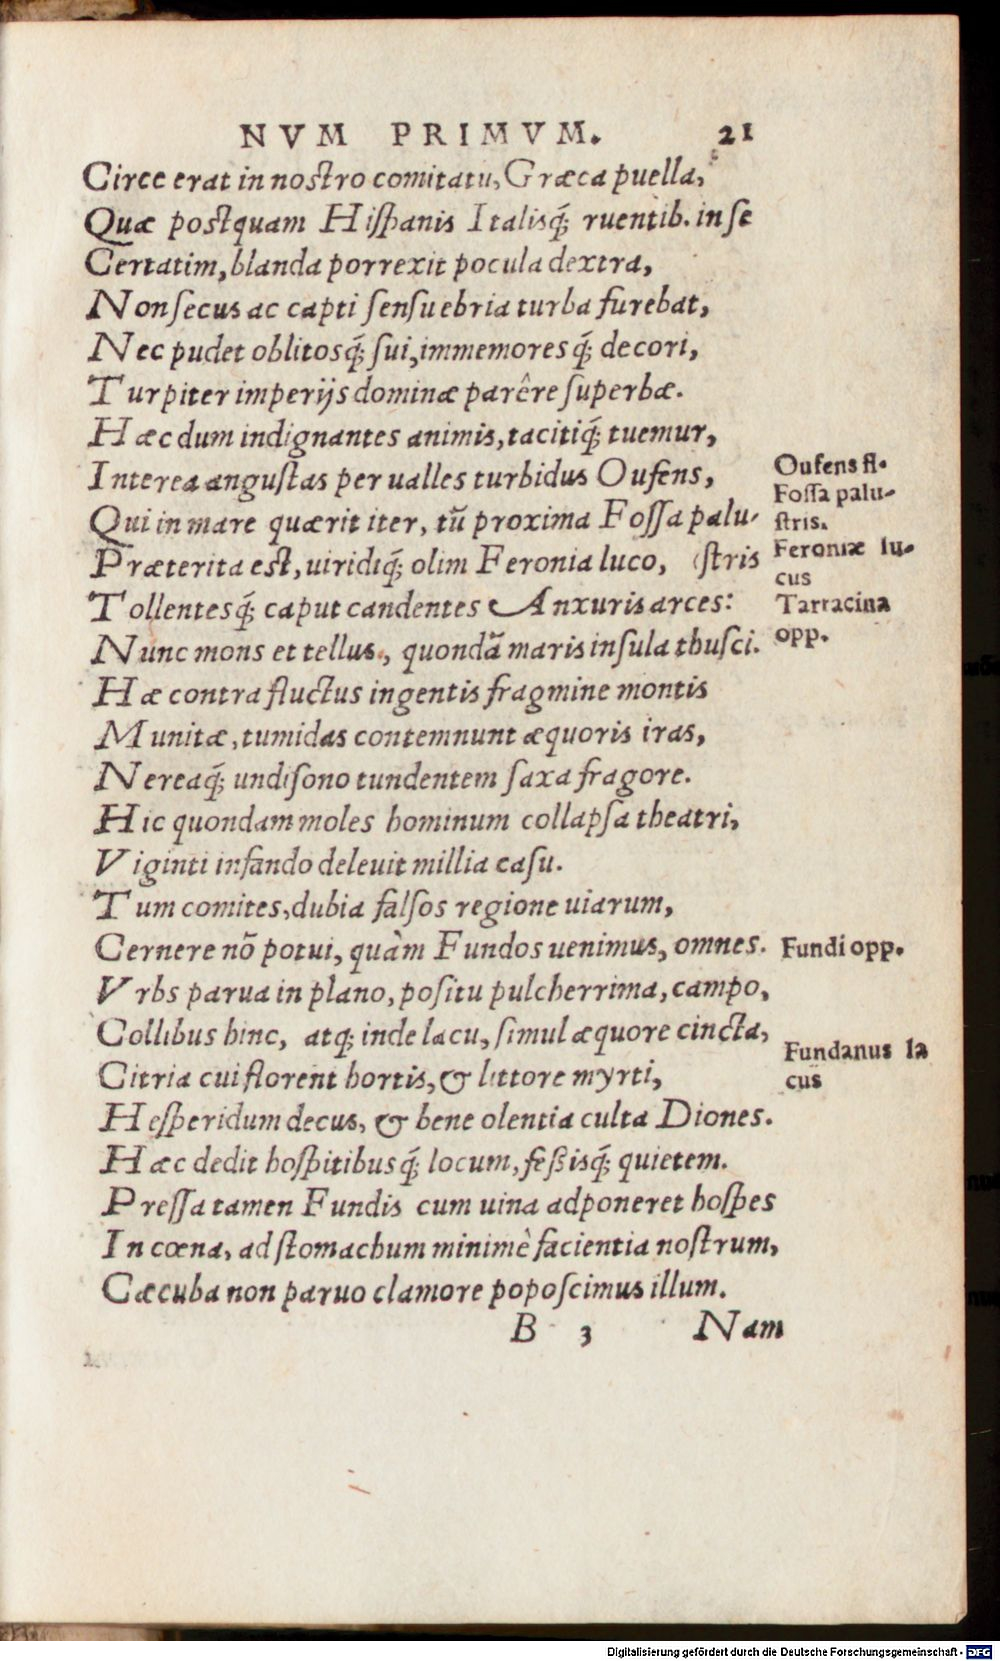 NVM PRIMVM. 21
Circe erat in nostro comitatu, Græca puella,
Quæ postquam Hiſpanis Italisq́; ruentib. in ſe
Certatim, blanda porrexit pocula dextra,
Non ſecus ac capti ſenſu ebria turba furebat,
Nec pudet oblitosq́; ſui, immemoresq́; decori,
Turpiter imperijs dominæ parêre ſuperbæ.
Hæc dum indignantes animis, tacitiq́; tuemur,
Interea anguſtas per ualles turbidus Oufens,
Oufens fl.
Qui in mare quærit iter, tũ proxima Foſſa palu-
Foſſa palu-
ſtris.
Præterita est, uiridiq́; olim Feronia luco, (ſtris
Feroniæ lu-
cus
Tollentesq́; caput candentes Anxuris arces:
Tarracina
opp.
Nunc mons et tellus, quondã maris inſula thuſci.
Hæ contra fluctus ingentis fragmine montis
Munitæ, tumidas contemnunt æquoris iras,
Nereaq́; undiſono tundentem ſaxa fragore.
Hic quondam moles hominum collapſa theatri,
Viginti infando deleuit millia caſu.
Tum comites, dubia falſos regione uiarum,
Cernere nõ potui, quàm Fundos uenimus, omnes.
Fundi opp.
Vrbs parua in plano, poſitu pulcherrima, campo,
Collibus hinc, atq; inde lacu, ſimul æquore cincta,
Fundanus la
cus
Citria cui florent hortis, & littore myrti,
Heſperidum decus, & bene olentia culta Diones.
Hæc dedit hoſpitibusq́; locum, feßisq́; quietem.
Preſſa tamen Fundis cum uina adponeret hoſpes
In cœna, ad ſtomachum minimè facientia noſtrum,
Cæcuba non paruo clamore popoſcimus illum.
B 3 Nam
Digitalisierung gefördert durch die Deutsche Forschungsgemeinschaft - DFG